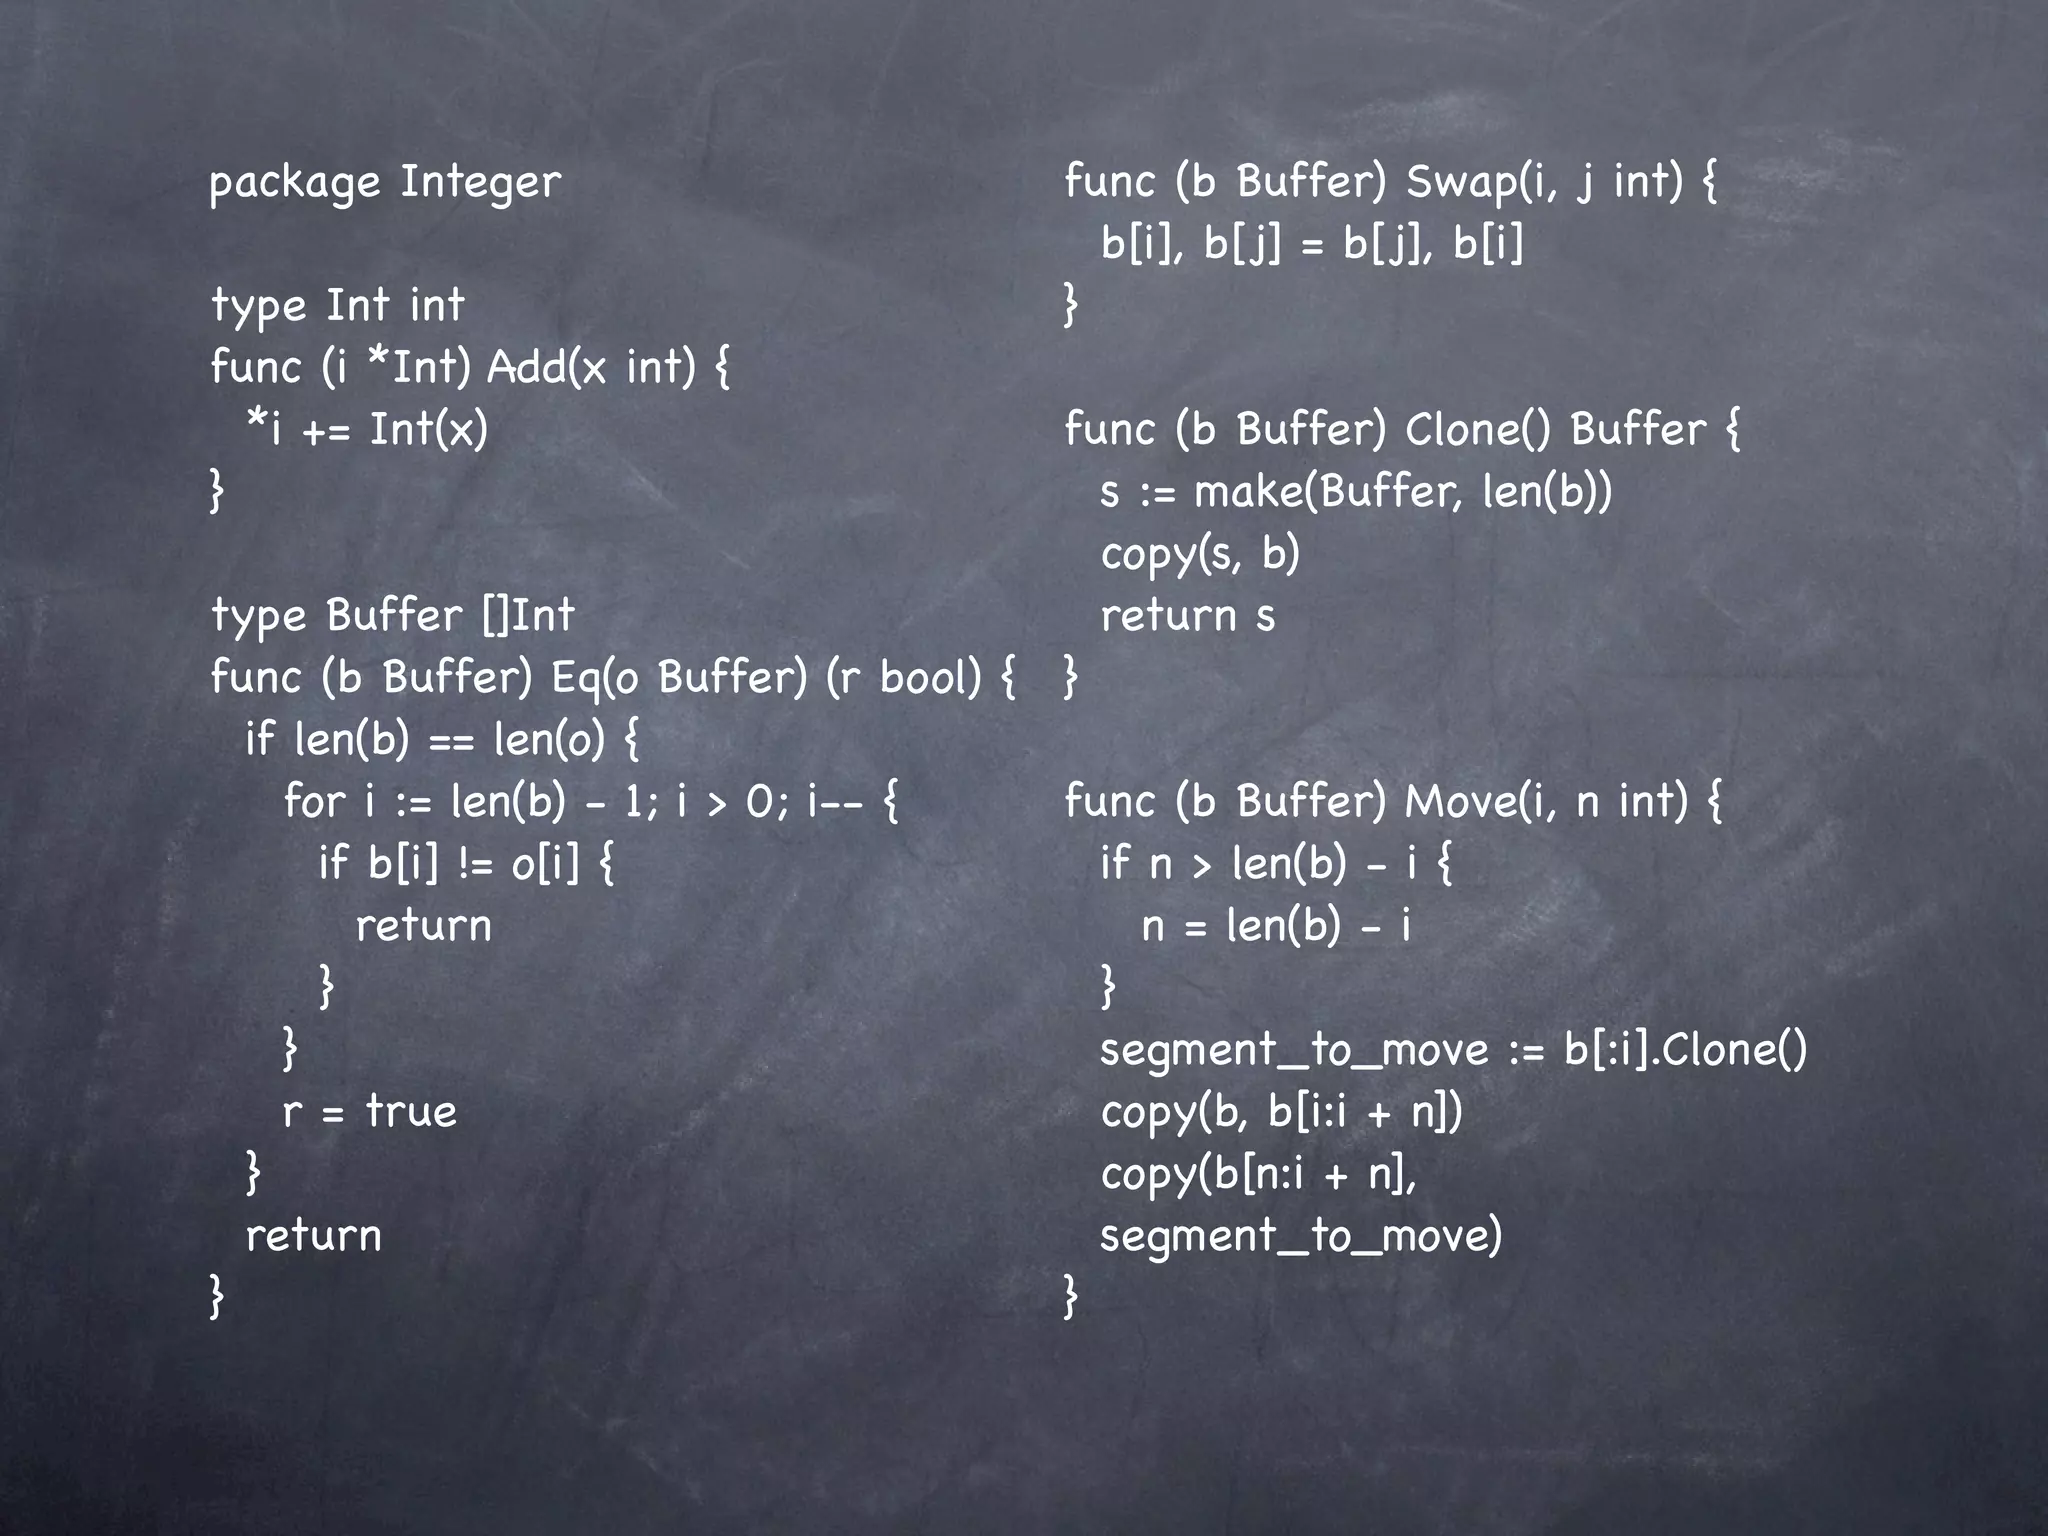 package Integer

type Int int
func (i *Int) Add(x int) {
  *i += Int(x)
}

type Buffer []Int
func (b Buffer) Eq(o Buffer) (r bool) {
  if len(b) == len(o) {
    for i := len(b) - 1; i > 0; i-- {
      if b[i] != o[i] {
        return
      }
    }
    r = true
  }
  return
}

func (b Buffer) Swap(i, j int) {
  b[i], b[j] = b[j], b[i]
}

func (b Buffer) Clone() Buffer {
  s := make(Buffer, len(b))
  copy(s, b)
  return s
}

func (b Buffer) Move(i, n int) {
  if n > len(b) - i {
    n = len(b) - i
  }
  segment_to_move := b[:i].Clone()
  copy(b, b[i:i + n])
  copy(b[n:i + n],
  segment_to_move)
}